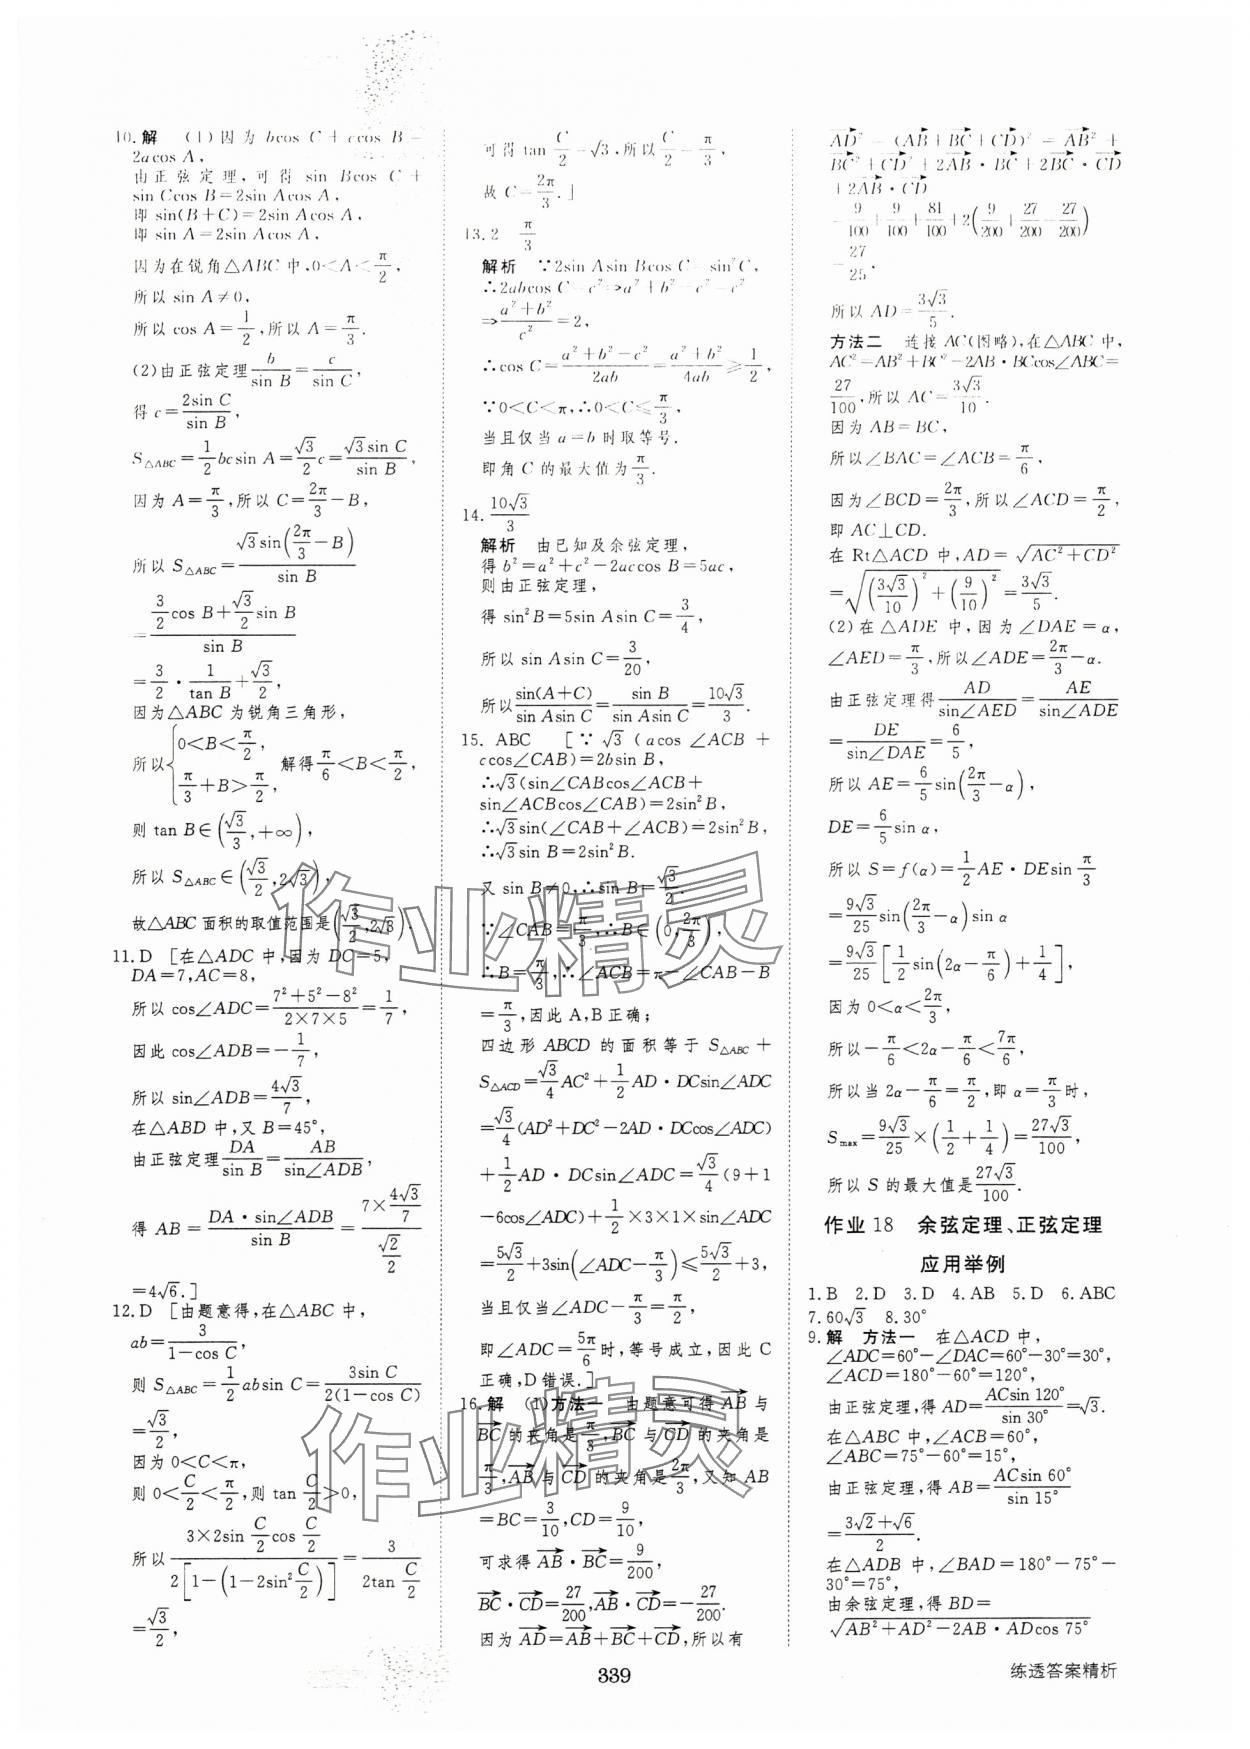 10.解 (1)因为 bcos C+ccos B=
2acos A,
由正弦定理,可得 sin Bcos C+
sin Ccos B=2sin Acos A,
即 sin(B+C)=2sin Acos A,
即 sin A=2sin Acos A,
因为在锐角△ABC 中,0<A<π/2,
所以 sin A≠0,
所以 cos A=1/2,所以 A=π/3.
(2)由正弦定理 b/sin B=c/sin C,
得 c=2sin C/sin B,
S△ABC=1/2 bcsin A=√3/2 c=√3sin C/sin B,
因为 A=π/3,所以 C=2π/3-B,
所以 S△ABC=√3sin(2π/3-B)/sin B
=(3/2 cos B+√3/2 sin B)/sin B
=3/2·1/tan B+√3/2,
因为△ABC 为锐角三角形,
所以{0<B<π/2, π/3+B>π/2, 解得π/6<B<π/2,
则 tan B∈(√3/3,+∞),
所以 S△ABC∈(√3/2,2√3),
故△ABC 面积的取值范围是(√3/2,2√3).
11.D [在△ADC 中,因为 DC=5,
DA=7,AC=8,
所以 cos∠ADC=(7²+5²-8²)/(2×7×5)=1/7,
因此 cos∠ADB=-1/7,
所以 sin∠ADB=4√3/7,
在△ABD 中,又 B=45°,
由正弦定理 DA/sin B=AB/sin∠ADB,
得 AB=DA·sin∠ADB/sin B=(7×4√3/7)/(√2/2)
=4√6.]
12.D [由题意得,在△ABC 中,
ab=3/(1-cos C),
则 S△ABC=1/2 absin C=3sin C/2(1-cos C)
=√3/2,
因为 0<C<π,
则 0<C/2<π/2,则 tan C/2>0,
所以 (3×2sin C/2 cos C/2)/(2[1-(1-2sin² C/2)])=3/(2tan C/2)
=√3/2,
可得 tan C/2=√3,所以 C/2=π/3,
故 C=2π/3.]
13.2 π/3
解析 ∵2sin Asin Bcos C=sin²C,
∴2abcos C=c²⇒a²+b²-c²=c²
⇒(a²+b²)/c²=2,
∴cos C=(a²+b²-c²)/2ab=(a²+b²)/4ab≥1/2,
∵0<C<π,∴0<C≤π/3,
当且仅当 a=b 时取等号.
即角 C 的最大值为π/3.
14.10√3/3
解析 由已知及余弦定理,
得 b²=a²+c²-2accos B=5ac,
则由正弦定理,
得 sin²B=5sin Asin C=3/4,
所以 sin Asin C=3/20,
所以 sin(A+C)/sin Asin C=sin B/sin Asin C=10√3/3.
15. ABC [∵√3(acos∠ACB+
ccos∠CAB)=2bsin B,
∴√3(sin∠CABcos∠ACB+
sin∠ACBcos∠CAB)=2sin²B,
∴√3sin(∠CAB+∠ACB)=2sin²B,
∴√3sin B=2sin²B.
又 sin B≠0,∴sin B=√3/2.
∵∠CAB=π/3,∴B∈(0,2π/3),
∴B=π/3,∴∠ACB=π-∠CAB-B
=π/3,因此 A,B 正确;
四边形 ABCD 的面积等于 S△ABC+
S△ACD=√3/4 AC²+1/2 AD·DCsin∠ADC
=√3/4(AD²+DC²-2AD·DCcos∠ADC)
+1/2 AD·DCsin∠ADC=√3/4(9+1
-6cos∠ADC)+1/2×3×1×sin∠ADC
=5√3/2+3sin(∠ADC-π/3)≤5√3/2+3,
当且仅当∠ADC-π/3=π/2,
即∠ADC=5π/6时,等号成立,因此 C
正确,D 错误.]
16.解 (1)方法一 由题意可得AB与
BC的夹角是π/3,BC与CD的夹角是
π/3,AB与CD的夹角是2π/3,又知 AB
=BC=3/10,CD=9/10,
可求得AB·BC=9/200,
BC·CD=27/200,AB·CD=-27/200.
因为AD=AB+BC+CD,所以有
AD²=(AB+BC+CD)²=AB²+
BC²+CD²+2AB·BC+2BC·CD
+2AB·CD
=9/100+9/100+81/100+2(9/200+27/200-27/200)
=27/25,
所以 AD=3√3/5.
方法二 连接 AC(图略),在△ABC 中,
AC²=AB²+BC²-2AB·BCcos∠ABC=
27/100,所以 AC=3√3/10.
因为 AB=BC,
所以∠BAC=∠ACB=π/6,
因为∠BCD=2π/3,所以∠ACD=π/2,
即 AC⊥CD.
在 Rt△ACD 中,AD=√(AC²+CD²)
=√((3√3/10)²+(9/10)²)=3√3/5.
(2)在△ADE 中,因为∠DAE=α,
∠AED=π/3,所以∠ADE=2π/3-α.
由正弦定理得 AD/sin∠AED=AE/sin∠ADE
=DE/sin∠DAE=6/5,
所以 AE=6/5 sin(2π/3-α),
DE=6/5 sin α,
所以 S=f(α)=1/2 AE·DEsin π/3
=9√3/25 sin(2π/3-α)sin α
=9√3/25[1/2 sin(2α-π/6)+1/4],
因为 0<α<2π/3,
所以-π/6<2α-π/6<7π/6,
所以当 2α-π/6=π/2,即 α=π/3时,
Smax=9√3/25×(1/2+1/4)=27√3/100,
所以 S 的最大值是27√3/100.
作业 18 余弦定理、正弦定理
应用举例
1.B 2.D 3.D 4.AB 5.D 6.ABC
7.60√3 8.30°
9.解 方法一 在△ACD 中,
∠ADC=60°-∠DAC=60°-30°=30°,
∠ACD=180°-60°=120°,
由正弦定理,得 AD=ACsin 120°/sin 30°=√3.
在△ABC 中,∠ACB=60°,
∠ABC=75°-60°=15°,
由正弦定理,得 AB=ACsin 60°/sin 15°
=(3√2+√6)/2.
在△ADB 中,∠BAD=180°-75°-
30°=75°,
由余弦定理,得 BD=
√(AB²+AD²-2AB·ADcos 75°)
339
练透答案精析
作业精灵
作业精灵